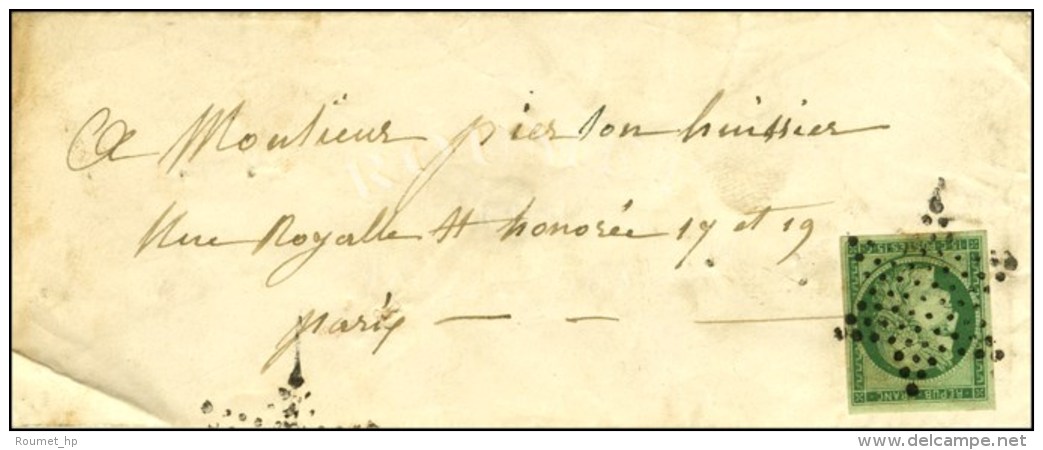 A Monsieur pierson huissier
Rue Royalle St honorée 17 et 19
paris
15 C. POSTES 15
REPUB FRANC
Roumet_hp
www.delcampe.net